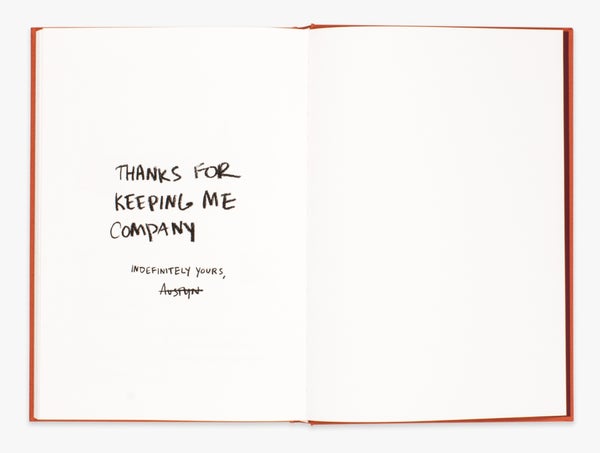 THANKS FOR
KEEPING ME
COMPANY
INDEFINITELY YOURS,
AUSTYN